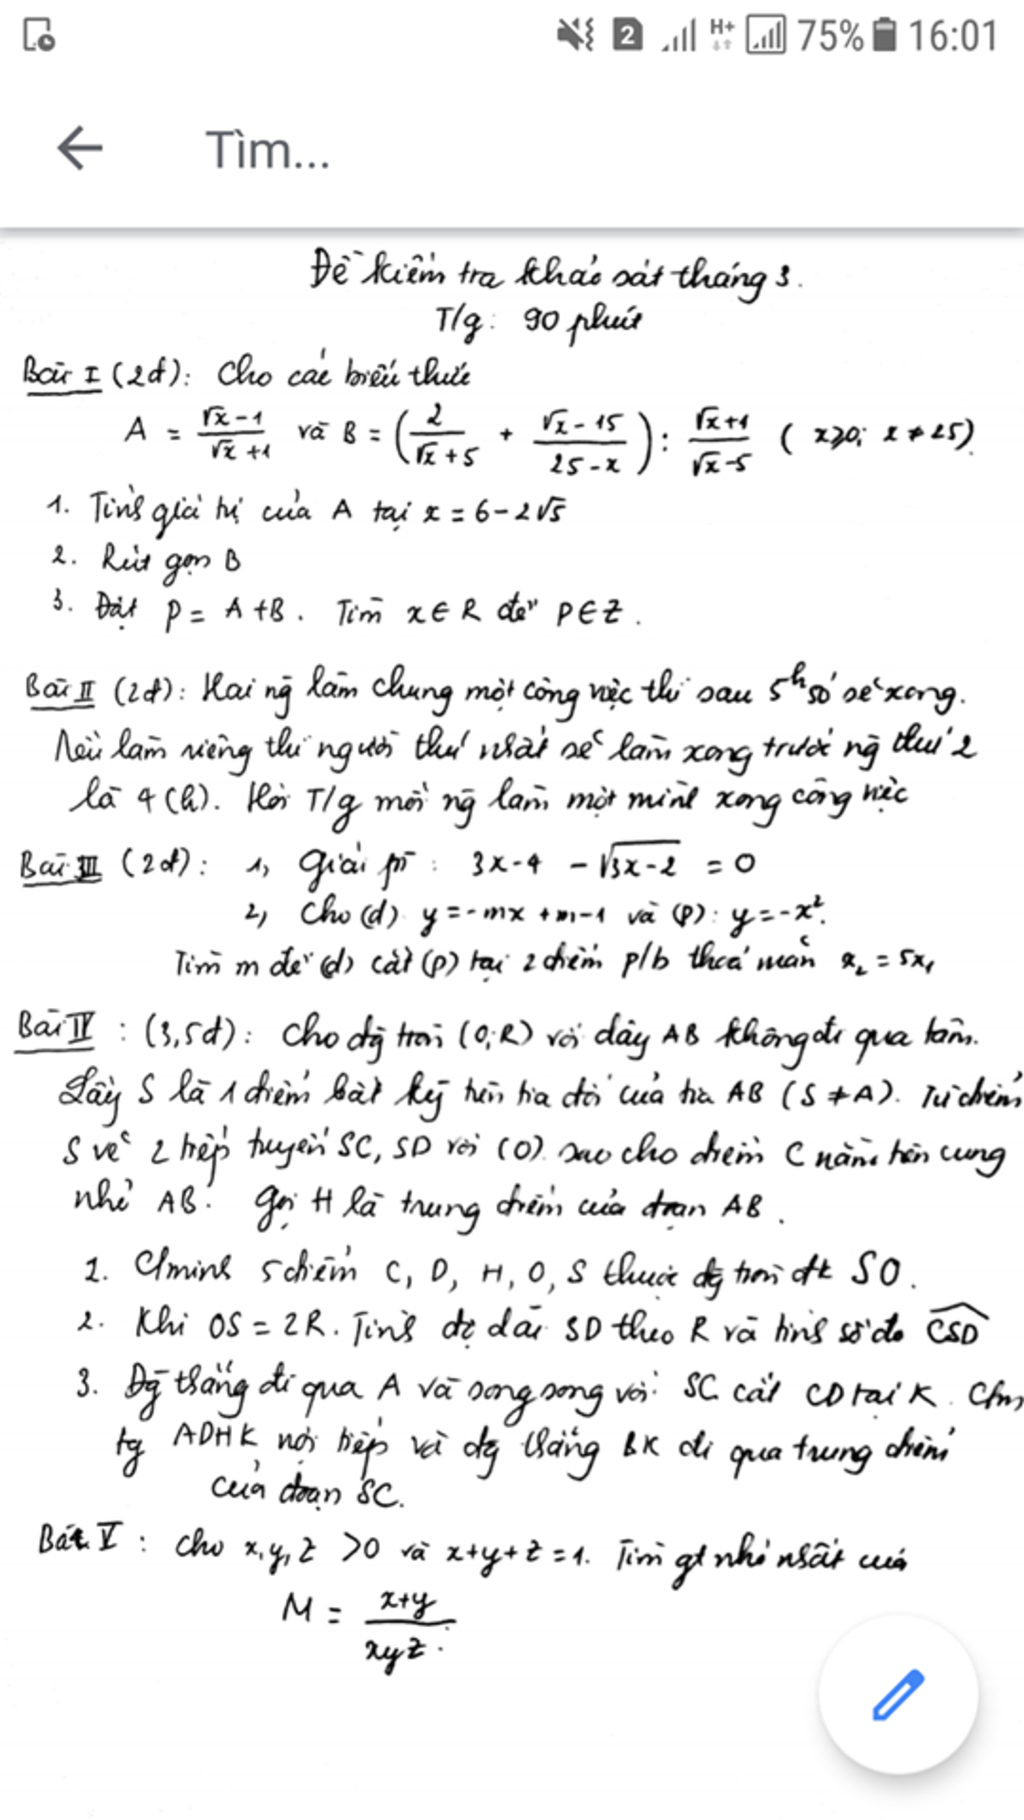 2 H+ 75% 16:01
Tìm...
Đề kiểm tra khảo sát tháng 3.
T/g: 90 phút
Bài I (2đ): Cho các biểu thức
A = (√x - 1)/(√x + 1) và B = (2/(√x + 5) + (√x - 15)/(25 - x)) : (√x + 1)/(√x - 5) ( x ≥ 0; x ≠ 25).
1. Tính giá trị của A tại x = 6 - 2√5
2. Rút gọn B
3. Đặt P = A + B. Tìm x ∈ R để P ∈ Z.
Bài II (2đ): Hai ng làm chung một công việc thì sau 5h50' sẽ xong.
Nếu làm riêng thì người thứ nhất sẽ làm xong trước ng thứ 2
là 4 (h). Hỏi T/g mỗi ng làm một mình xong công việc
Bài III (2đ): 1, Giải pt: 3x - 4 - √(3x - 2) = 0
2, Cho (d) y = -mx + m - 1 và (P): y = -x².
Tìm m để (d) cắt (P) tại 2 điểm p/b thoả mãn x₂ = 5x₁
Bài IV : (3,5đ): Cho đg tròn (O;R) với dây AB không đi qua tâm.
Lấy S là 1 điểm bất kỳ trên tia đối của tia AB (S ≠ A). Từ điểm
S vẽ 2 tiếp tuyến SC, SD với (O) sao cho điểm C nằm trên cung
nhỏ AB. Gọi H là trung điểm của đoạn AB.
1. C/minh 5 điểm C, D, H, O, S thuộc đg tròn đk SO.
2. Khi OS = 2R. Tính độ dài SD theo R và tính số đo CSD
3. Đg thẳng đi qua A và song song với SC cắt CD tại K. C/m
tg ADHK nội tiếp và đg thẳng BK đi qua trung điểm
của đoạn SC.
Bài V : Cho x, y, z > 0 và x+y+z = 1. Tìm gt nhỏ nhất của
M = (x+y)/(xyz).